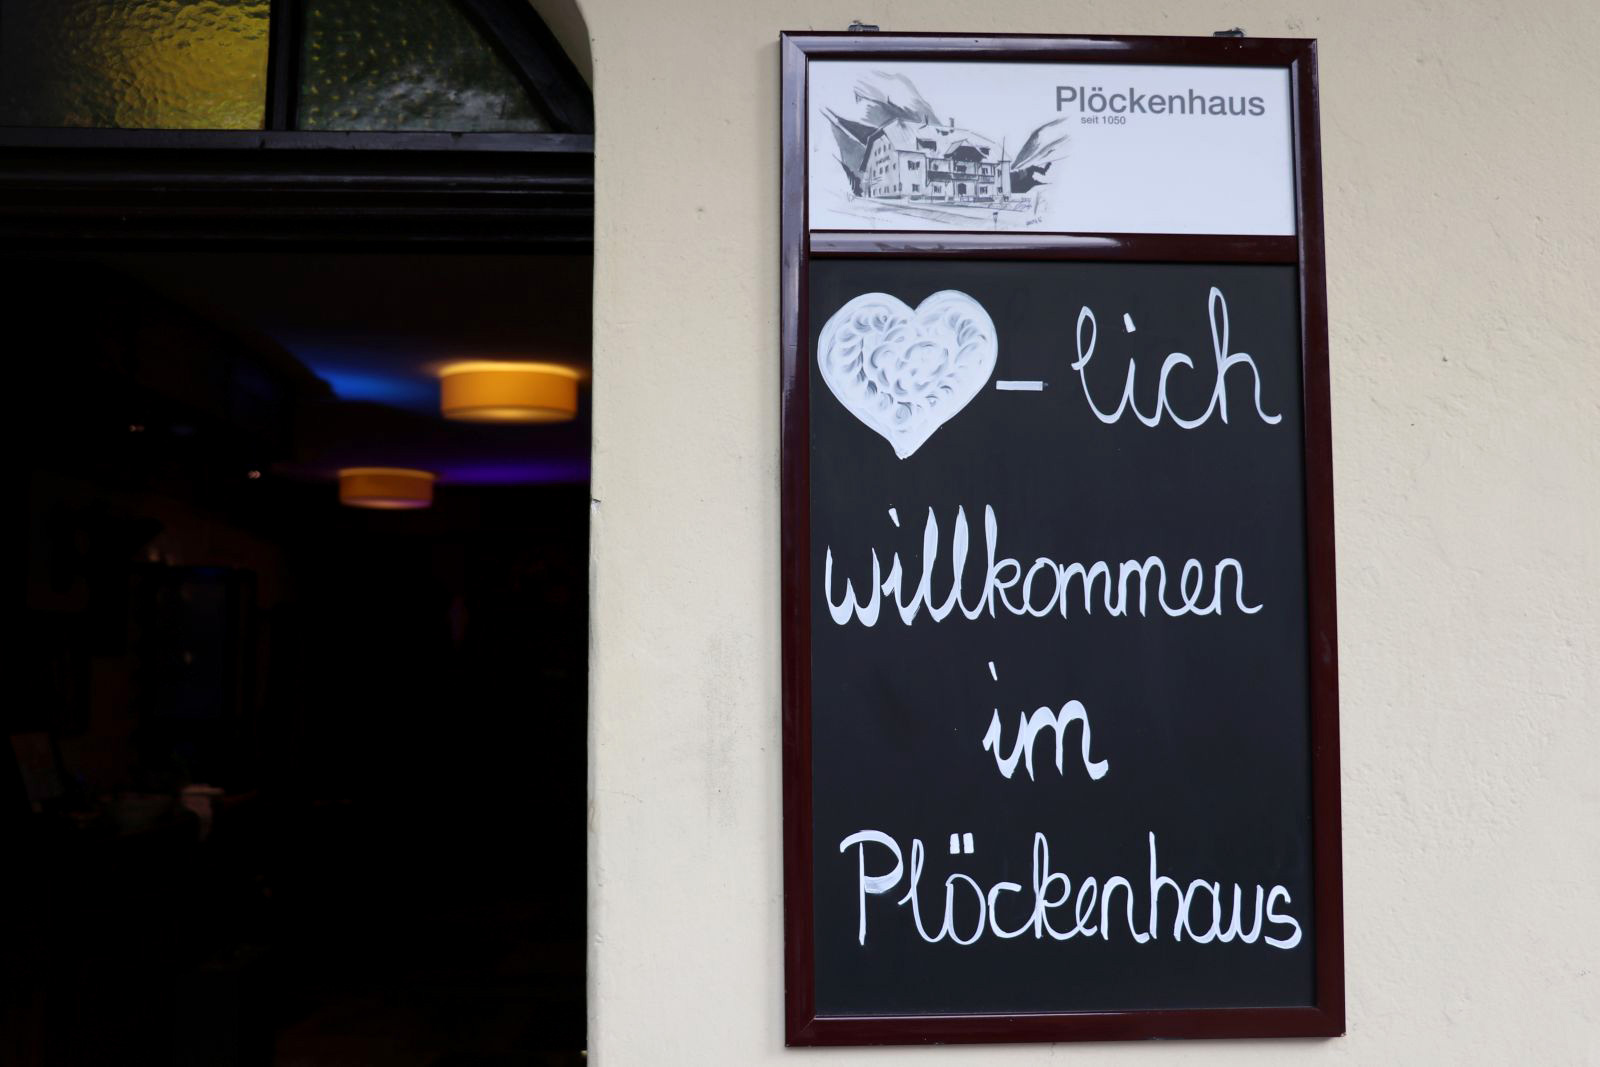 Plöckenhaus
seit 1050
-lich
willkommen
im
Plöckenhaus